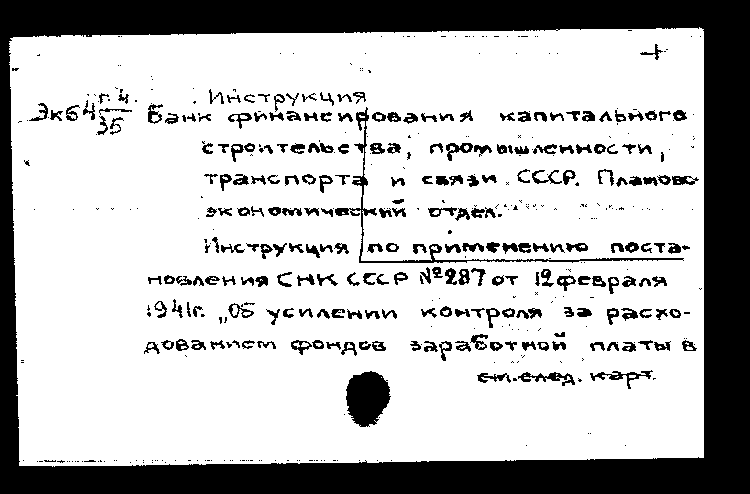 +
Инструкция
Экб4 г. 4. / 35 Банк финансирования капитального
строительства, промышленности,
транспорта и связи СССР. Планово-
экономический отдел.
Инструкция по применению поста-
новления СНК СССР №287 от 12 февраля
1941г. „Об усилении контроля за расхо-
дованием фондов заработной платы в
см. след. карт.